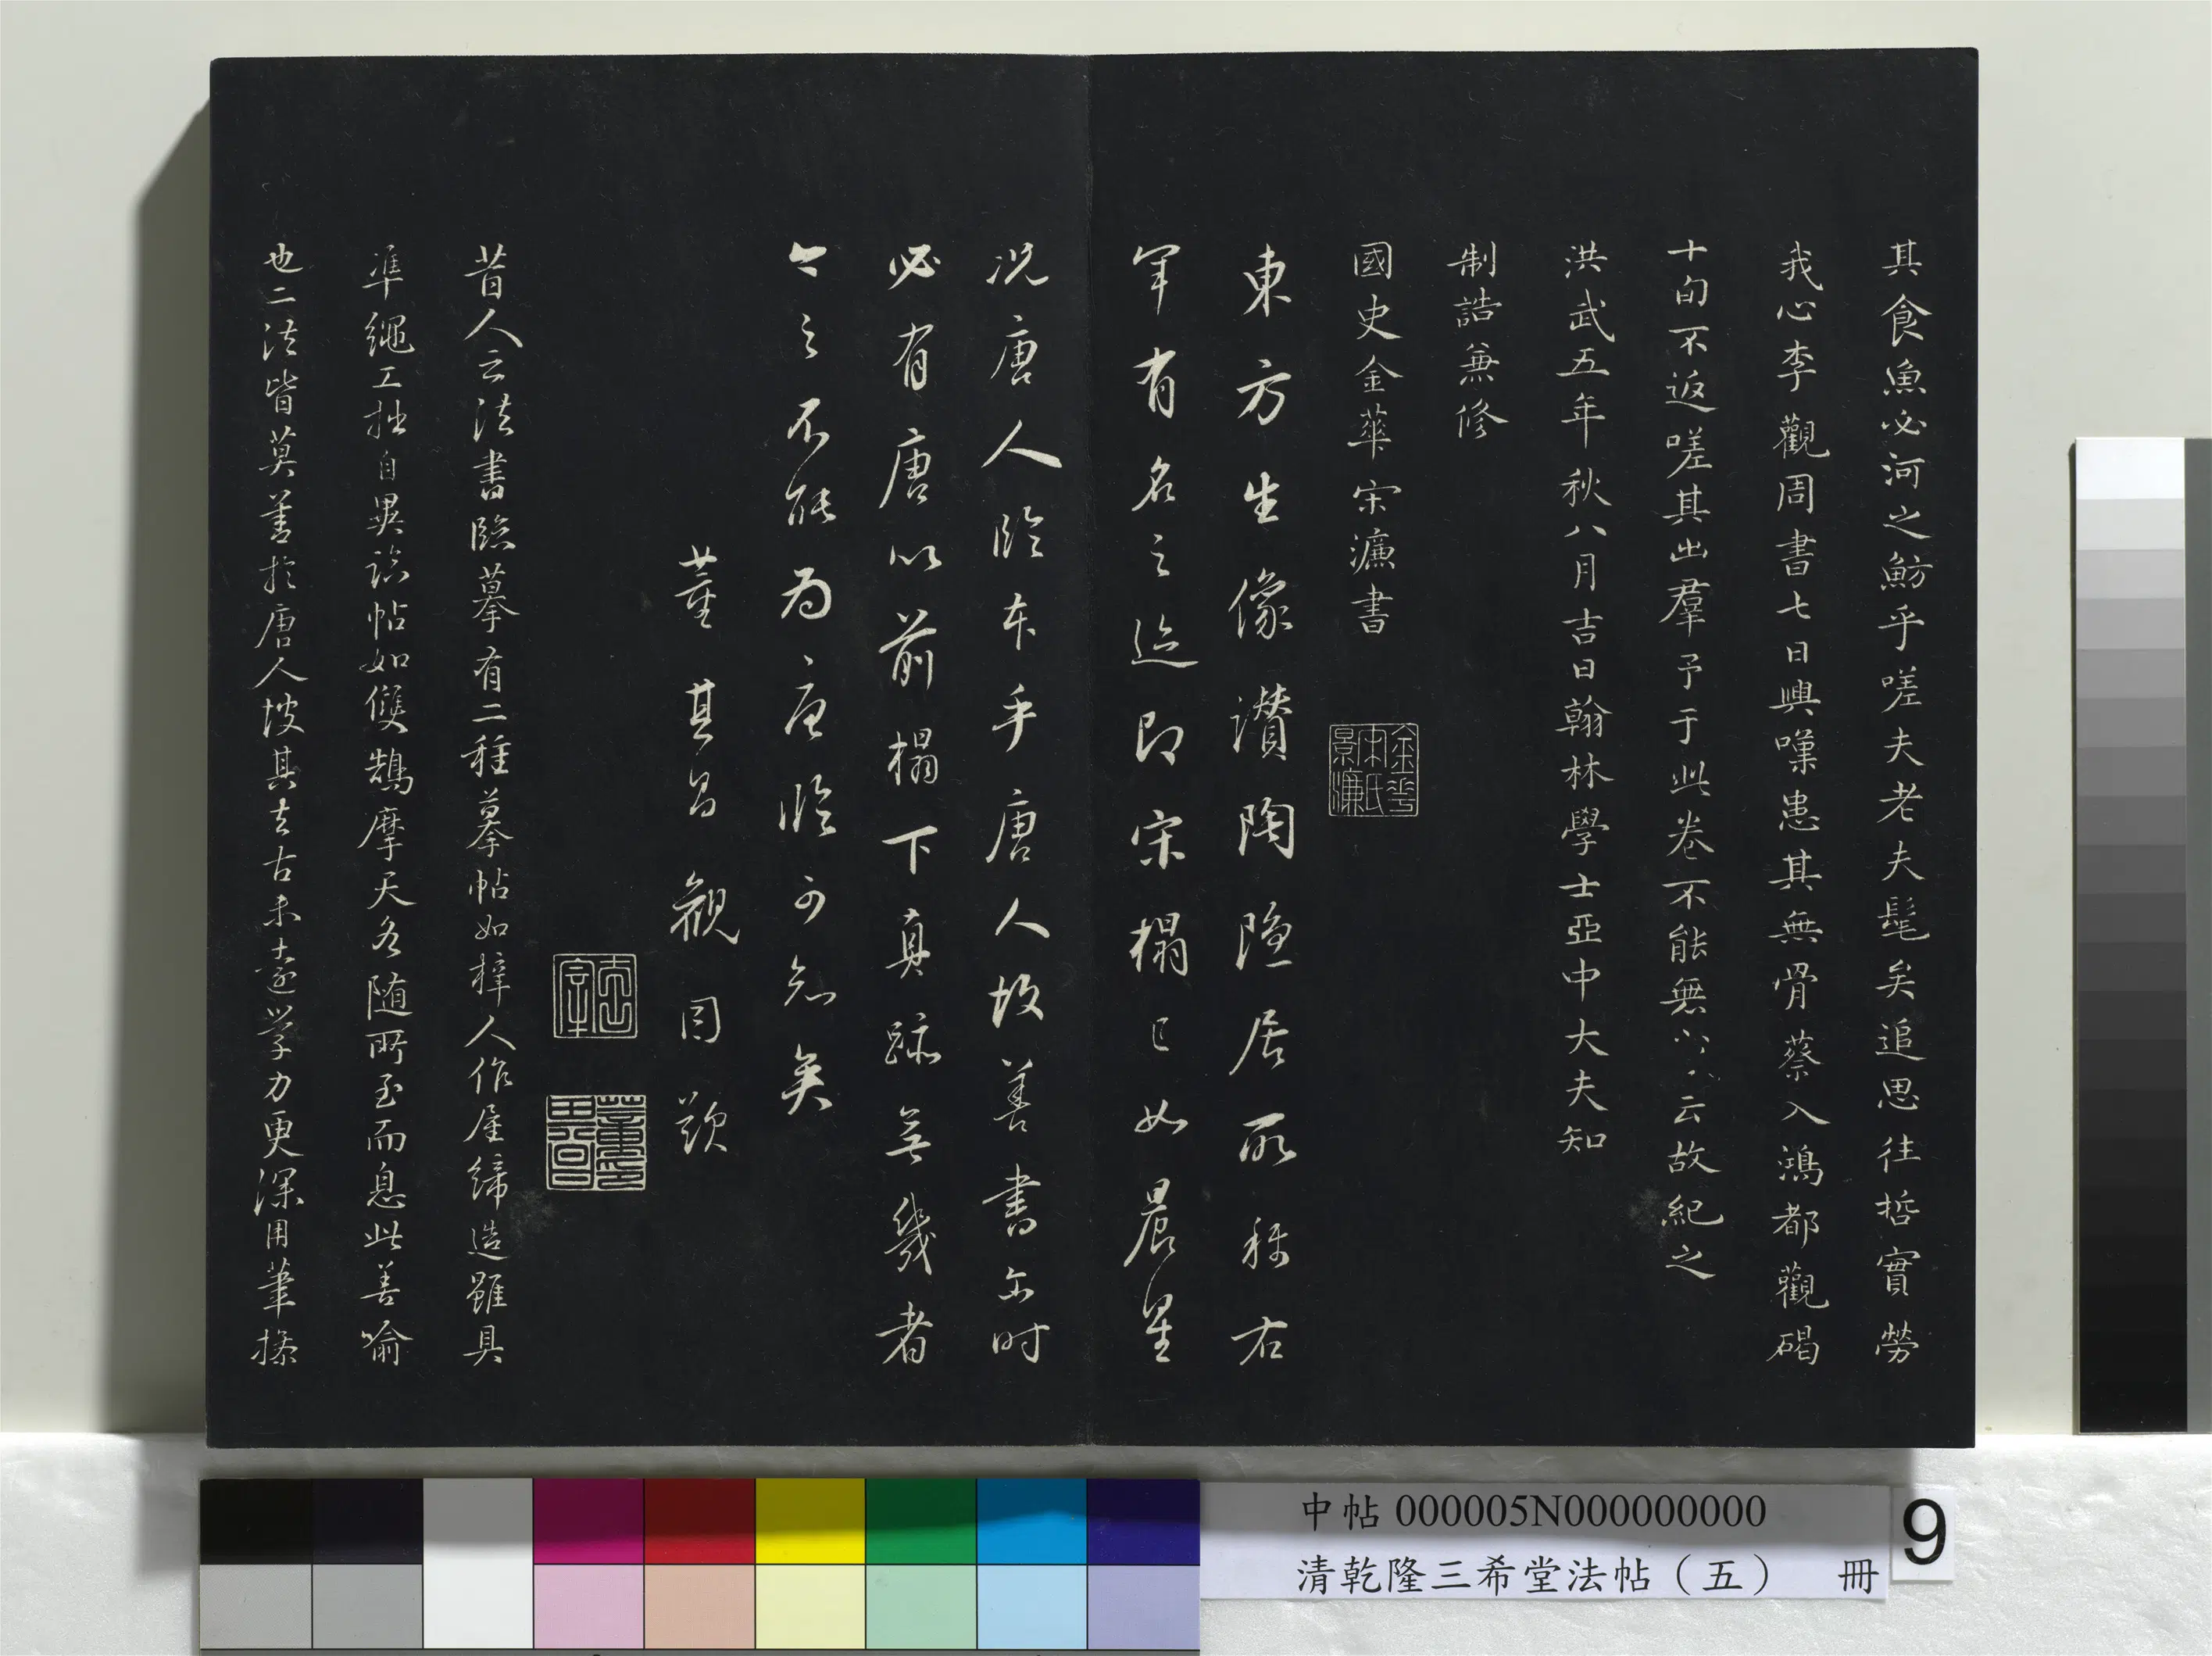 其食魚必河之魴乎嗟夫老夫髦矣追思往哲實勞
我心李觀周書七日興嘆患其無骨蔡入鴻都觀碣
十旬不返嗟其出羣予于此卷不能無云故紀之
洪武五年秋八月吉日翰林學士亞中大夫知
制誥兼修
國史金華宋濂書
金華宋氏景濂
東方生像讚陶隱居所稱右
軍有名之迹即宋榻已如晨星
況唐人臨本乎唐人故善書尔时
必有唐以前榻下真跡無幾者
今之不能为唐臨可知矣
董其昌觀因題
昔人云法書臨摹有二種摹帖如梓人作屋締造雖具
準繩工拙自異臨帖如雙鵠摩天各随所至而息此善喻
也二法皆莫善於唐人彼其去古未遠學力更深用筆搽
中帖 000005N000000000
清乾隆三希堂法帖（五） 冊
9